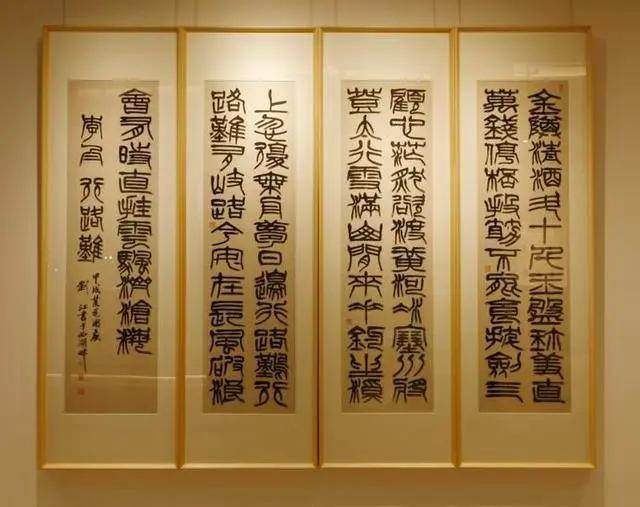 金罇清酒斗十千玉盤珍羞直
萬錢停桮投箸不能食拔劍亖
顧心茫然欲渡黃河冰塞川將
登太行雪滿山閒來垂釣坐溪
上忽復乘舟夢日邊行路難行
路難多岐路今安在長風破浪
會有時直挂雲颿濟滄海
李白 行路難
甲戌
劉江書于西湖畔